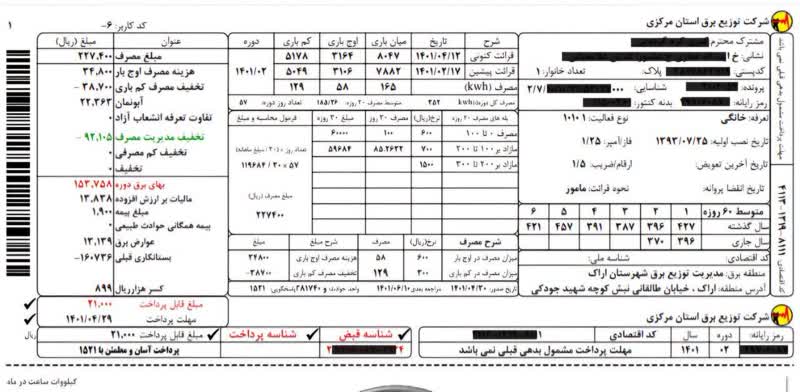 کد کاربر: ۶-
۱
شرکت توزیع برق استان مرکزی
مشترک محترم
نشانی: خ
کدپستی: پلاک: تعداد خانوار: ۱
پرونده: شناسایی: ۲/۷/
رمز رایانه: بدنه کنتور:
تعرفه: خانگی نوع فعالیت: ۱۰۱۰۱
تاریخ نصب اولیه: ۱۳۹۳/۰۷/۲۵ فاز/آمپر: ۱/۲۵
تاریخ آخرین تعویض: ارقام/ضریب: ۱/۵
تاریخ انقضا پروانه: نحوه قرائت: مامور
متوسط ۶۰ روزه ۱ ۲ ۳ ۴ ۵ ۶
سال گذشته ۴۲۷ ۳۹۶ ۳۸۷ ۳۹۱ ۴۵۷ ۴۲۱
سال جاری ۳۹۶ ۳۷۰
کد اقتصادی: شناسه ملی:
منطقه برق: مدیریت توزیع برق شهرستان اراک
آدرس منطقه: اراک ، خیابان طالقانی نبش کوچه شهید جودکی
مهلت پرداخت مشمول بدهی قبلی نمی باشد
کد اقتصادی: ۸۱۱۱-۱۳۱۹-۴۱۱۳
شرح تاریخ میان باری اوج باری کم باری دوره
قرائت کنونی ۱۴۰۱/۰۴/۱۲ ۸۰۴۷ ۳۱۶۴ ۵۱۷۸ ۱۴۰۱/۰۲
قرائت پیشین ۱۴۰۱/۰۲/۱۷ ۷۸۸۲ ۳۱۰۶ ۵۰۴۹
مصرف (kwh) ۱۶۵ ۵۸ ۱۲۹
مصرف کل دوره(kwh) ۳۵۲ متوسط مصرف ۳۰ روزه: ۱۸۵/۲۶ تعداد روز دوره: ۵۷
پله های مصرف ۳۰ روزه نرخ(ریال) مصرف ۳۰ روز مبلغ ۳۰ روز فرمول محاسبه و مبلغ
مصرف ۰ تا ۱۰۰ ۶۰۰ ۱۰۰ ۶۰۰۰۰
مازاد بر ۱۰۰ تا ۲۰۰ ۷۰۰ ۸۵.۲۶۳۲ ۵۹۶۸۴ تعداد روز × (۳۰ / مبلغ ماهانه)
مازاد بر ۲۰۰ تا ۳۰۰ ۱۵۰۰ ۱۱۹۶۸۴ / ۳۰ × ۵۷
مبلغ مصرف (ریال)
۲۲۷۴۰۰
شرح مصرف نرخ(ریال) مصرف شرح هزینه مبلغ
میزان مصرف در اوج بار ۶۰۰ ۵۸ هزینه مصرف اوج باری ۳۴۸۰۰
میزان مصرف در کم باری ۳۰۰ ۱۲۹ تخفیف مصرف کم باری ۳۸۷۰۰-
تاریخ صدور: ۱۴۰۱/۰۴/۲۰ مراجعه بعدی: ۱۴۰۱/۰۶/۱۰
عنوان مبلغ (ریال)
مبلغ مصرف ۲۲۷,۴۰۰
هزینه مصرف اوج بار ۳۴,۸۰۰
تخفیف مصرف کم باری ۳۸,۷۰۰-
آبونمان ۲۲,۳۶۳
تفاوت تعرفه انشعاب آزاد ۰
تخفیف مدیریت مصرف ۹۲,۱۰۵-
تخفیف کم مصرفی ۰
تخفیف ۰
بهای برق دوره ۱۵۳,۷۵۸
مالیات بر ارزش افزوده ۱۳,۸۳۸
مبلغ بیمه ۱,۹۰۰
بیمه همگانی حوادث طبیعی ۰
عوارض برق ۱۳,۱۳۹
بستانکاری قبلی ۱۶۰۷۳۶-
کسر هزارریال ۸۹۹
مبلغ قابل پرداخت ۲۱,۰۰۰
مهلت پرداخت ۱۴۰۱/۰۴/۲۹
شرکت توزیع برق استان مرکزی
رمز رایانه: دوره سال کد اقتصادی
۰۲ ۱۴۰۱ مهلت پرداخت مشمول بدهی قبلی نمی باشد
شناسه قبض شناسه پرداخت مبلغ قابل پرداخت ۲۱,۰۰۰ ریال
پرداخت آسان و مطمئن با ۱۵۲۱
کیلووات ساعت در ماه